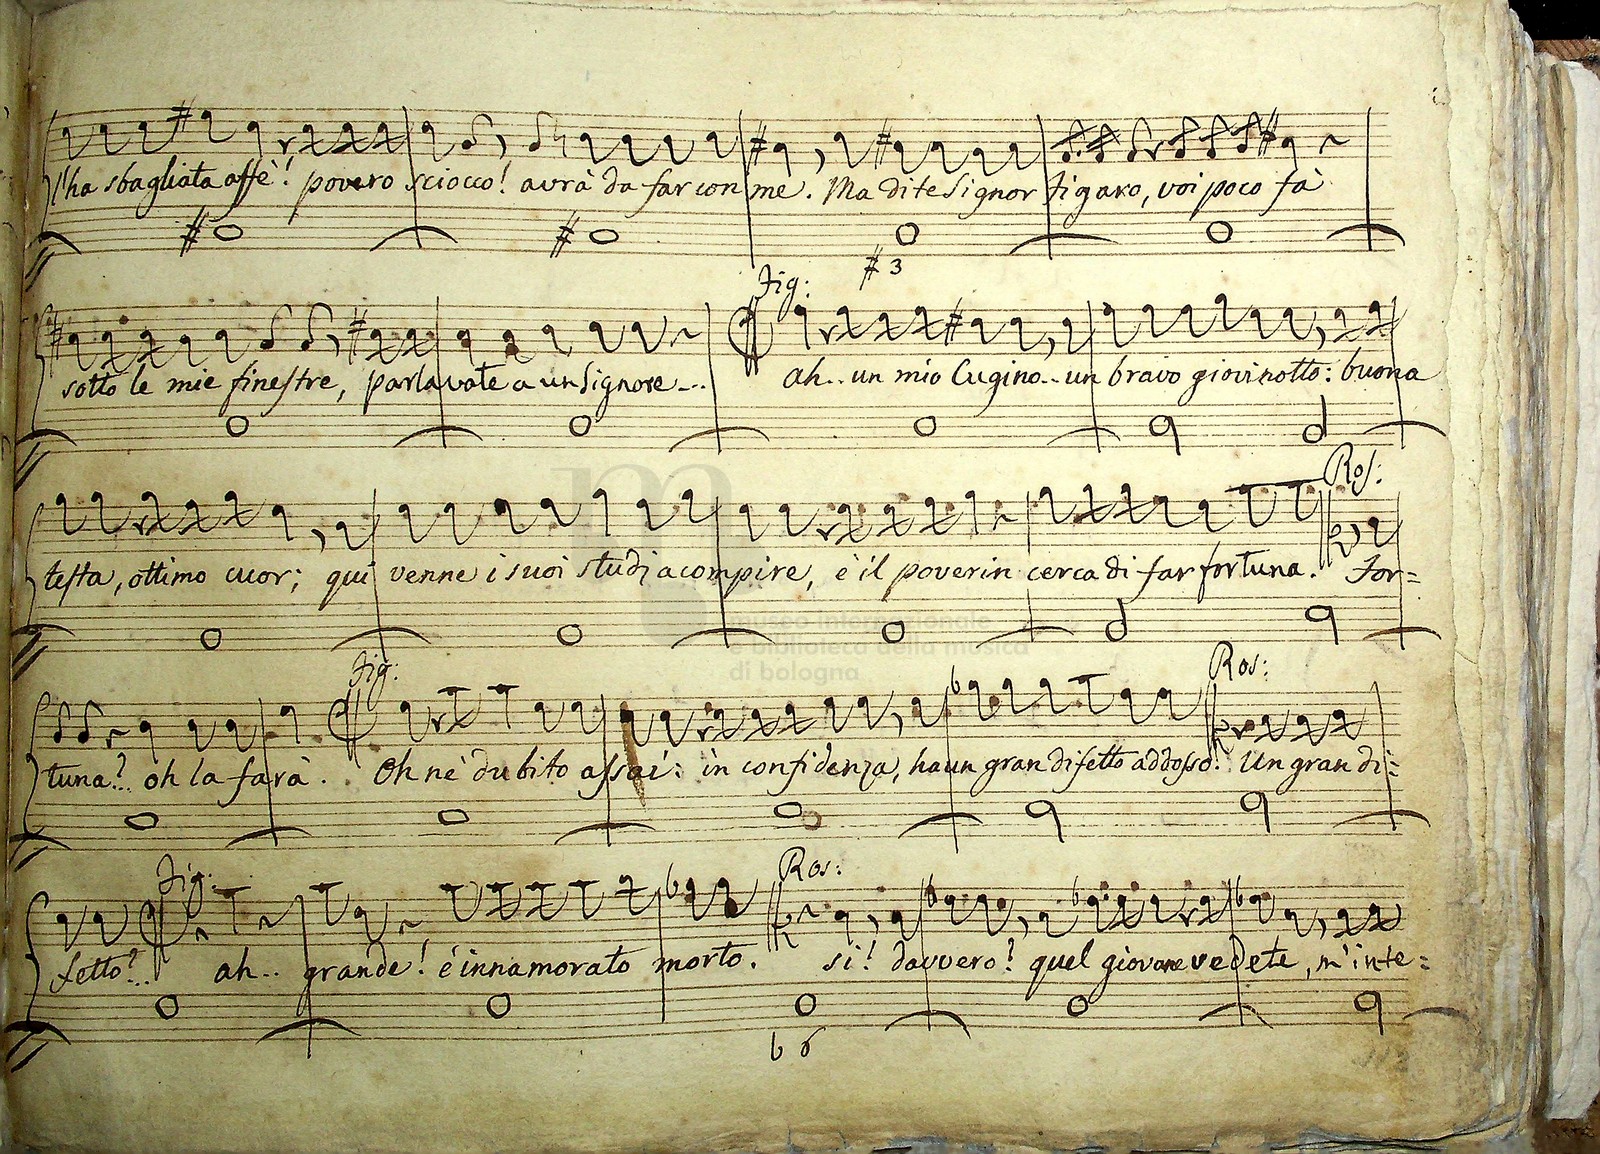 l'ha sbagliata affè! povero sciocco! avrà da far con me. Ma dite Signor Figaro, voi poco fà
# 3
Fig:
sotto le mie finestre, parlavate a un Signore...
ah.. un mio Cugino.. un bravo giovinotto: buona
Ros:
testa, ottimo cuor; qui venne i suoi studj a compire, e il poverin cerca di far fortuna. For=
museo internazionale
e biblioteca della musica
di bologna
Fig: Ros:
tuna?.. oh la farà. Oh ne dubito assai: in confidenza, ha un gran difetto addosso. Un gran di=
Fig: Ros:
fetto?.. ah.. grande! è innamorato morto. si! davvero? quel giovane vedete, m'inte=
b 6